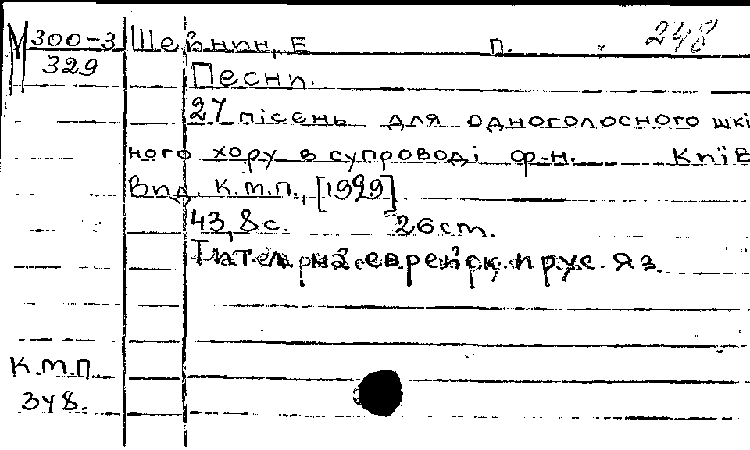 М 300-3 Шейнин, Е П. 248
329
Песни.
27 пісень для одноголосного шкі
ного хору в супроводі ф-н. Київ
Вид. К.М.П., [1929]
43, 8 с. 26 cm.
Титул на еврейск. и рус. яз.
К.М.П.
348.